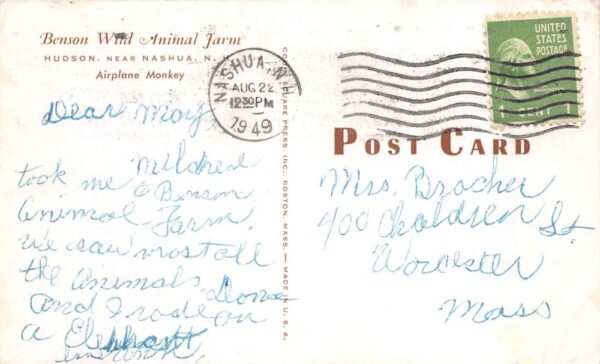 Benson Wild Animal Farm
HUDSON, NEAR NASHUA, N.
Airplane Monkey
Dear May
Mildred
took me to Benson
Animal Farm.
we saw most all
the animals.
and I rode on
a Elephant
NASHUA, N.
AUG 22
1230PM
1949
UNITED
STATES
POSTAGE
1 CENT 1
POST CARD
Mrs. Brocher
400 St.
Worcester
Mass
COLOURPICTURE PRESS, INC., BOSTON, MASS. — MADE IN U. S. A.